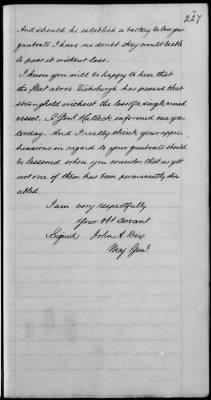 227
And should he establish a battery below your
gunboats I have no doubt they would be able
to pass it without loss.
I know you will be happy to hear that
the fleet above Vicksburgh has passed that
stronghold without the loss of a single armed
vessel. So Genl Halleck informed me yes-
terday. And I really think your appre-
hensions in regard to your gunboats should
be lessened when you consider that as yet
not one of them has been permanently dis
abled.
I am very respectfully
Your Obt Servant
Signed, John A. Dix
Maj Genl.